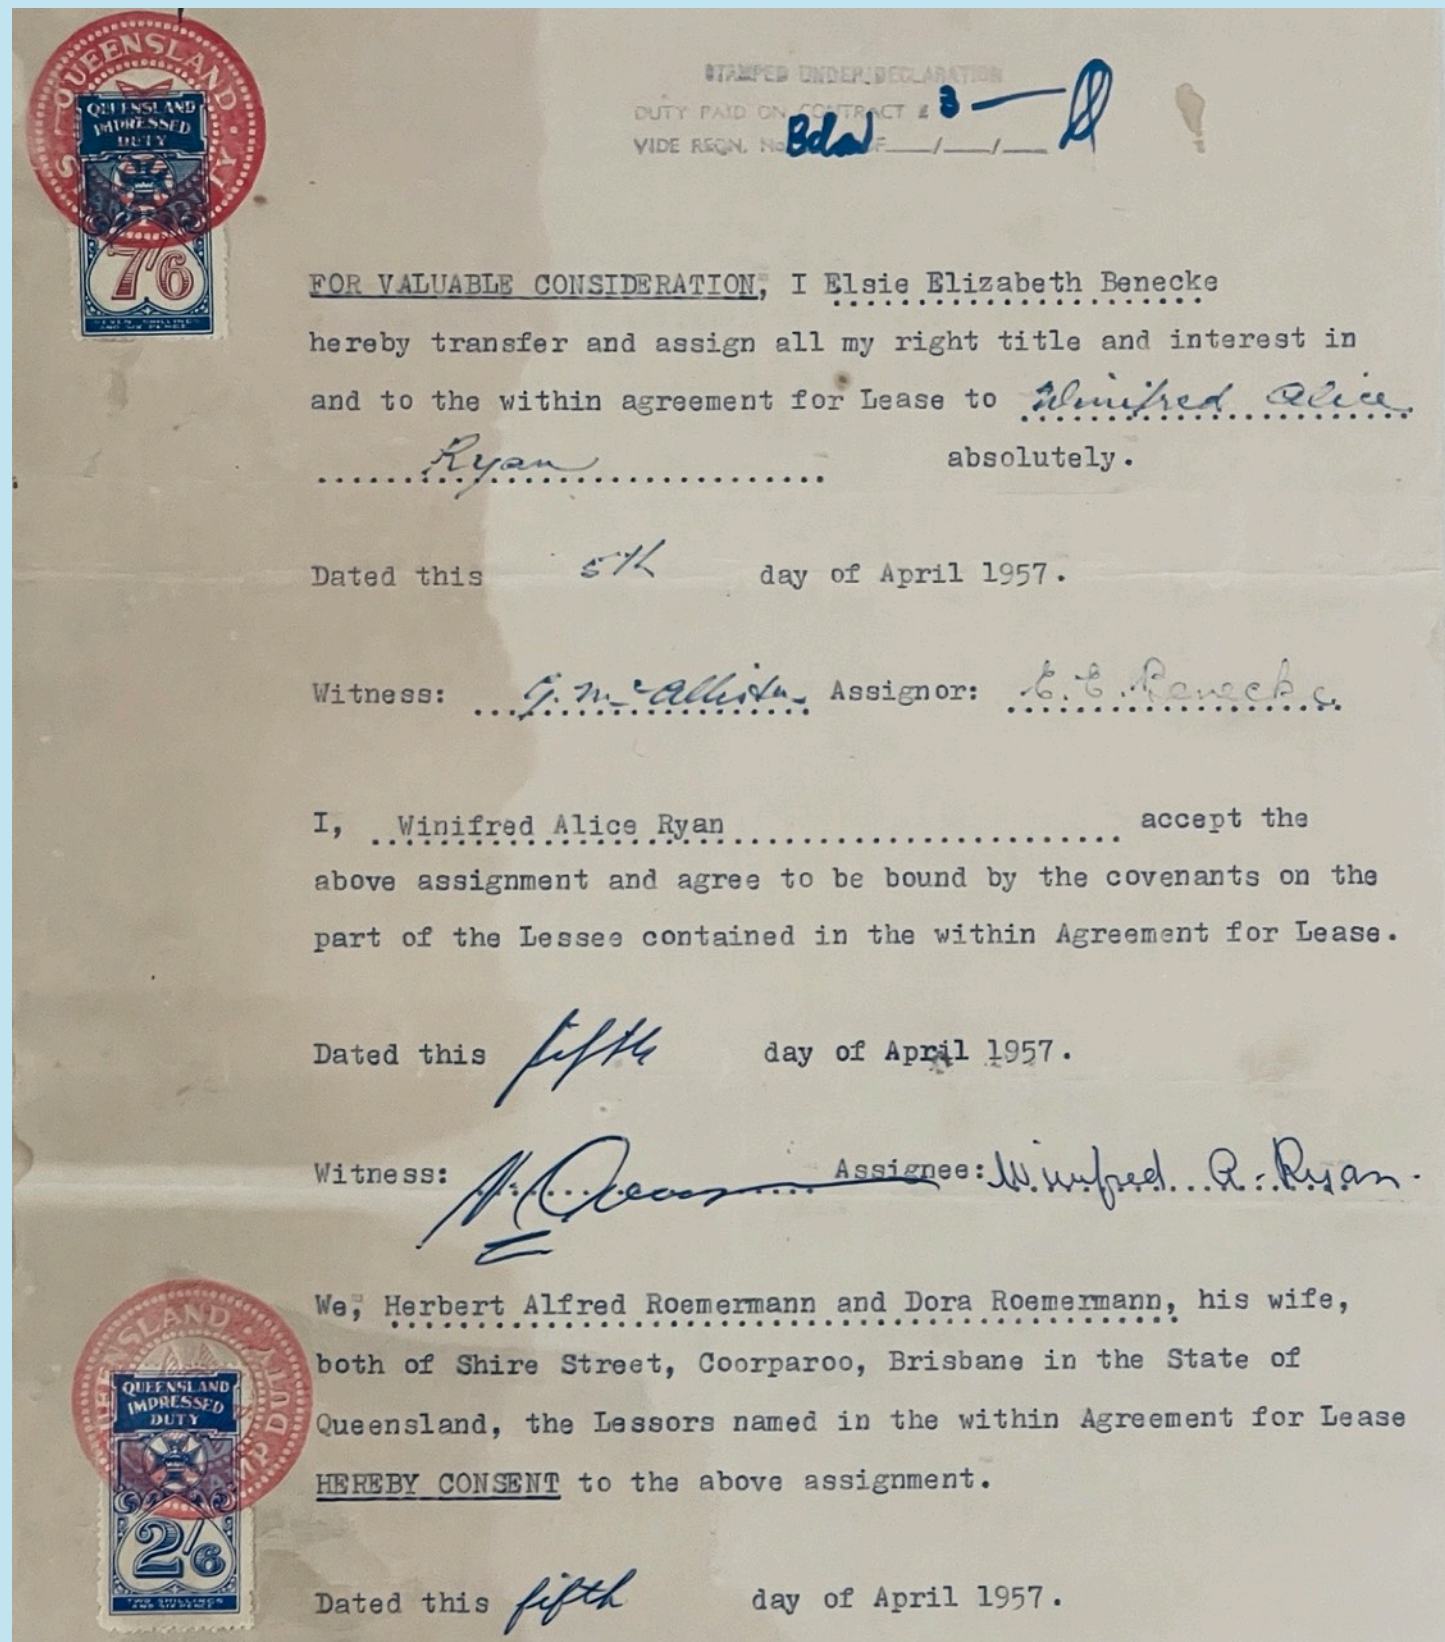 QUEENSLAND
STAMP DUTY
QUEENSLAND
IMPRESSED
DUTY
7/6
SEVEN SHILLINGS
AND SIX PENCE
STAMPED UNDER DECLARATION
DUTY PAID ON CONTRACT £ 3
VIDE REGN. No. / /
FOR VALUABLE CONSIDERATION, I Elsie Elizabeth Benecke
hereby transfer and assign all my right title and interest in
and to the within agreement for Lease to Winifred Alice
Ryan absolutely.
Dated this 5th day of April 1957.
Witness: G. McAllister Assignor: E. E. Benecke
I, Winifred Alice Ryan accept the
above assignment and agree to be bound by the covenants on the
part of the Lessee contained in the within Agreement for Lease.
Dated this fifth day of April 1957.
Witness: Assignee: Winifred A. Ryan.
We, Herbert Alfred Roemermann and Dora Roemermann, his wife,
both of Shire Street, Coorparoo, Brisbane in the State of
Queensland, the Lessors named in the within Agreement for Lease
HEREBY CONSENT to the above assignment.
QUEENSLAND
STAMP DUTY
QUEENSLAND
IMPRESSED
DUTY
2/6
TWO SHILLINGS
AND SIXPENCE
Dated this fifth day of April 1957.